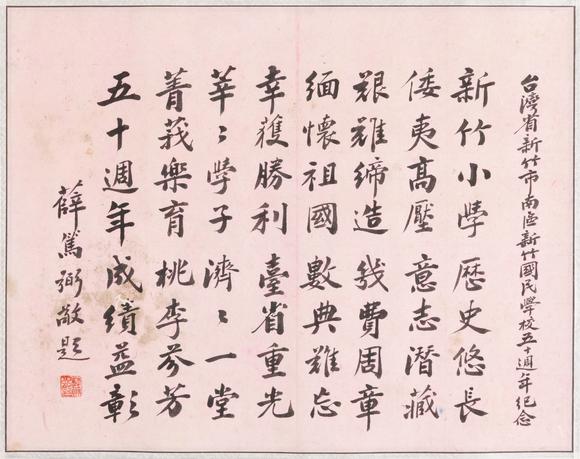 台灣省新竹市南區新竹國民學校五十週年紀念
新竹小學歷史悠長
倭夷高壓意志潛藏
艱難締造幾費周章
緬懷祖國數典難忘
幸獲勝利臺省重光
莘〻學子濟〻一堂
菁莪樂育桃李芬芳
五十週年成績益彰
薛篤弼敬題